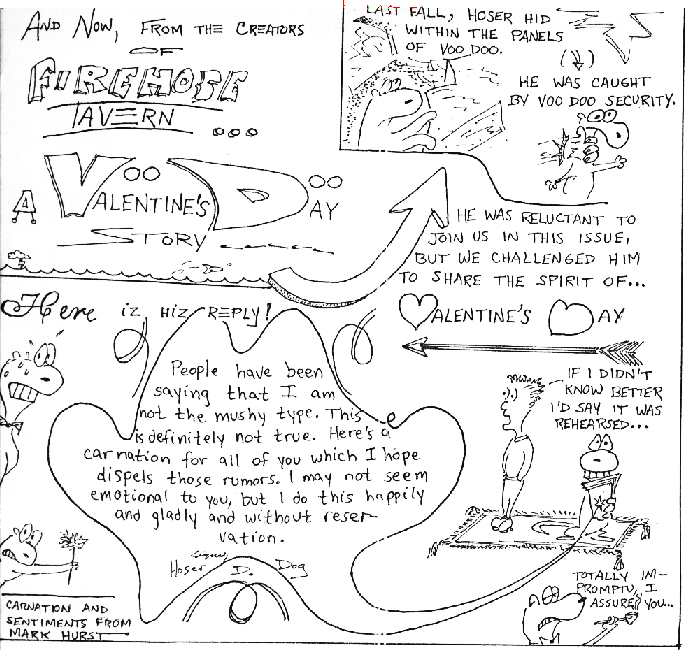 AND NOW, FROM THE CREATORS
OF
FIREHOSE
TAVERN ...
A VOODOO
VALENTINE'S DAY
STORY
LAST FALL, HOSER HID
WITHIN THE PANELS
OF VOO DOO.
HE WAS CAUGHT
BY VOO DOO SECURITY.
HE WAS RELUCTANT TO
JOIN US IN THIS ISSUE,
BUT WE CHALLENGED HIM
TO SHARE THE SPIRIT OF...
VALENTINE'S DAY
Here iz hiz REPLY!
People have been
saying that I am
not the mushy type. This
is definitely not true. Here's a
carnation for all of you which I hope
dispels those rumors. I may not seem
emotional to you, but I do this happily
and gladly and without reser-
vation.
Hoser D. Dog
IF I DIDN'T
KNOW BETTER
I'D SAY IT WAS
REHEARSED...
TOTALLY IM-
PROMPTU, I
ASSURE YOU..
CARNATION AND
SENTIMENTS FROM
MARK HURST